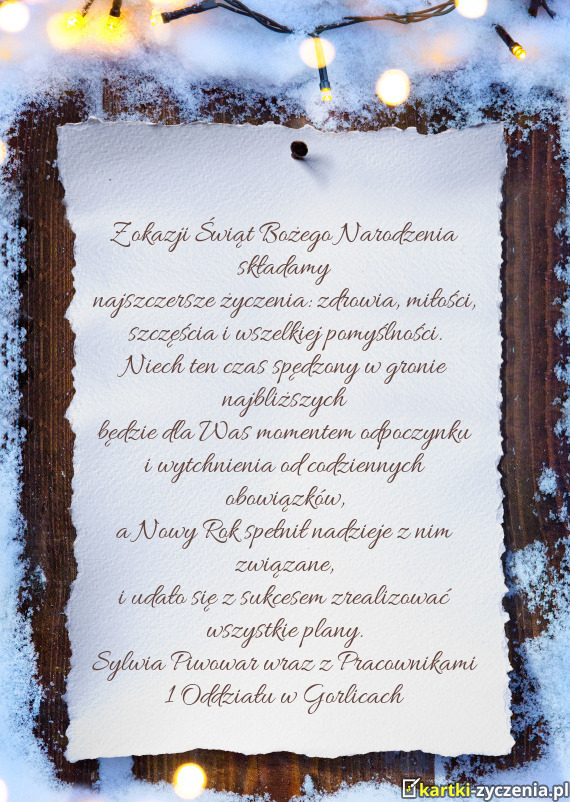 Z okazji Świąt Bożego Narodzenia
składamy
najszczersze życzenia: zdrowia, miłości,
szczęścia i wszelkiej pomyślności.
Niech ten czas spędzony w gronie
najbliższych
będzie dla Was momentem odpoczynku
i wytchnienia od codziennych
obowiązków,
a Nowy Rok spełnił nadzieje z nim
związane,
i udało się z sukcesem zrealizować
wszystkie plany.
Sylwia Piwowar wraz z Pracownikami
1 Oddziału w Gorlicach
kartki-zyczenia.pl